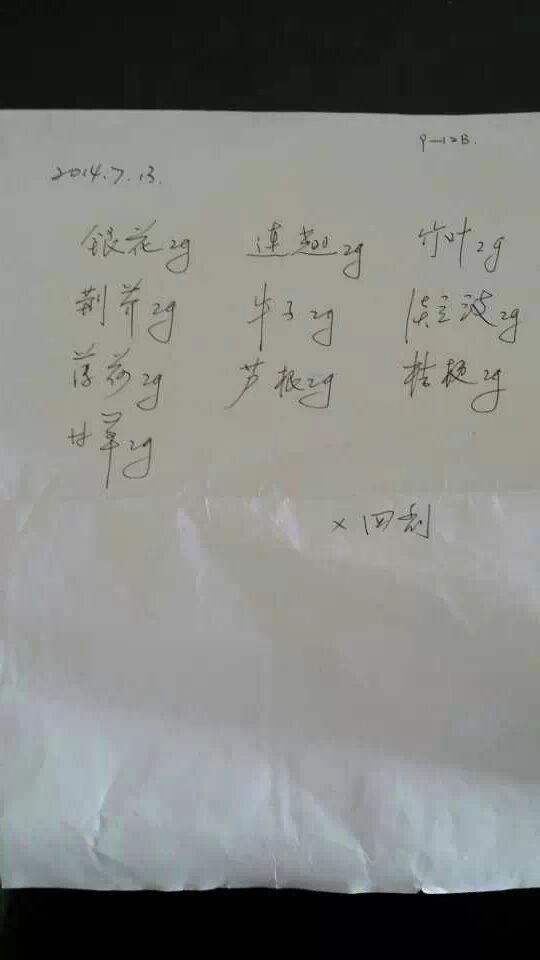 9-12日.
2014.7.13.
银花2g 连翘2g 竹叶2g
荆芥2g 牛子2g 淡豆豉2g
薄荷2g 芦根2g 桔梗2g
甘草2g
×四剂